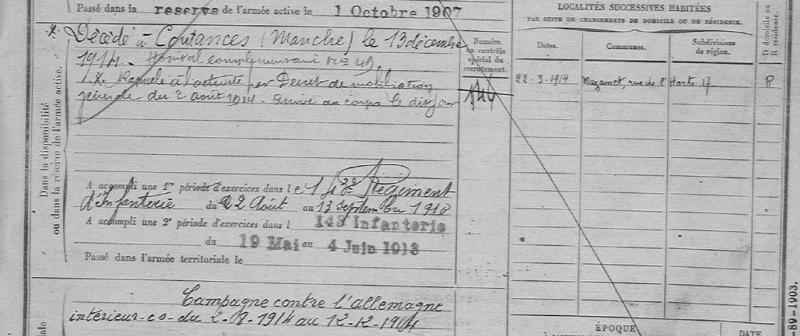 Passé dans la reserve de l'armée active le 1 Octobre 1907
* Décédé à Coutances (Manche) le 13 décembre
1914. Hôpital complémentaire Nº 49.
Rappelé à l'activité par Décret de mobilisation
générale du 2 août 1914. Arrivé au corps le dit jour
Dans la disponibilité
ou dans la réserve de l'armée active.
A accompli une 1re période d'exercices dans l e 143e Régiment
d'Infanterie du 22 Août au 13 septembre 1910
A accompli une 2e période d'exercices dans l 143 Infanterie
du 19 Mai au 4 Juin 1913
Passé dans l'armée territoriale le
Campagne contre l'allemagne
intérieur c.d. du 2-8-1914 au 12-12-1914
Numéro
de contrôle
spécial du
recrutement.
144
LOCALITÉS SUCCESSIVES HABITÉES
PAR SUITE DE CHANGEMENTS DE DOMICILE OU DE RÉSIDENCE.
Dates. Communes. Subdivisions
de région. D domicile ou
R résidence.
22-3-1914 Mazamet, rue de l' 17 R
ÉPOQUE
DATE
89-1903.